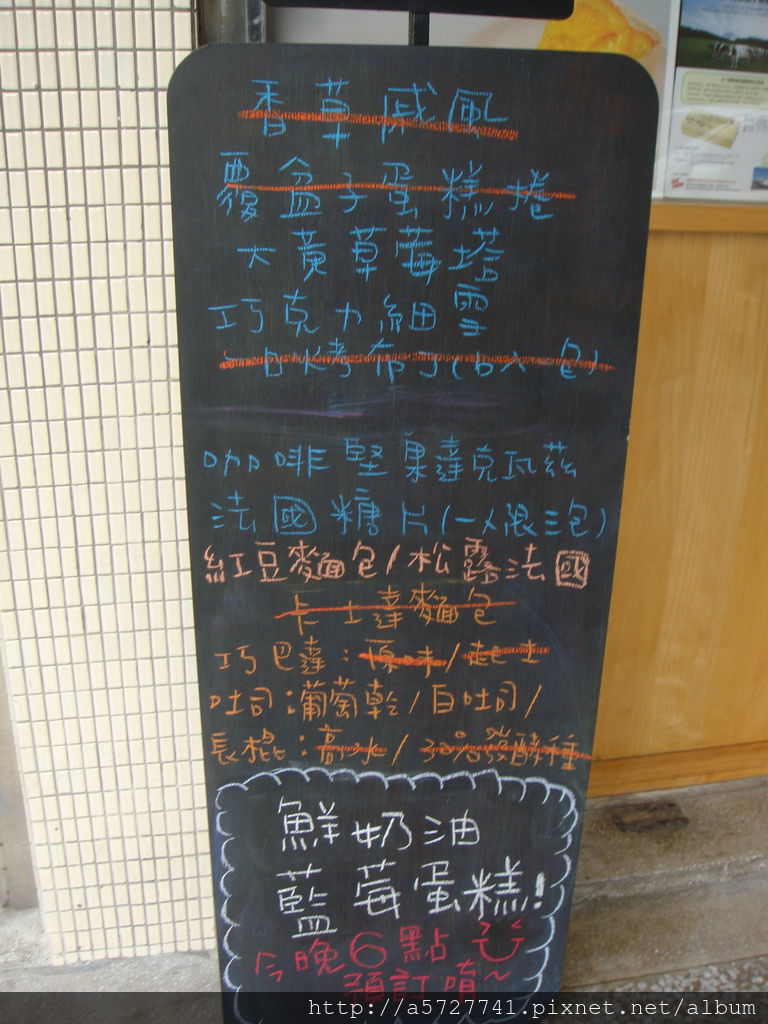 香草戚風
覆盆子蛋糕捲
大黃草莓塔
巧克力細雪
咖啡堅果達克瓦茲
法國糖片(一人限三包)
紅豆麵包/松露法國
卡士達麵包
巧巴達:原味/起士
吐司:葡萄乾/白吐司/
長棍:高水/30%發酵種
鮮奶油
藍莓蛋糕!
今晚6點
預訂唷~
http://a5727741.pixnet.net/album